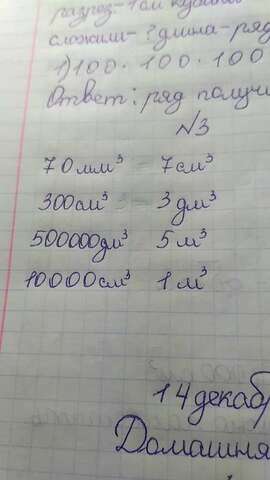 разрез - 1 см кубиков
сложили - ? длина - ряд
1) 100 · 100 · 100
Ответ: ряд получи
N3
70 мм³ - 7 см³
300 см³ - 3 дм³
500000 дм³ 5 м³
10000 см³ 1 м³
14 декаб
Домашня